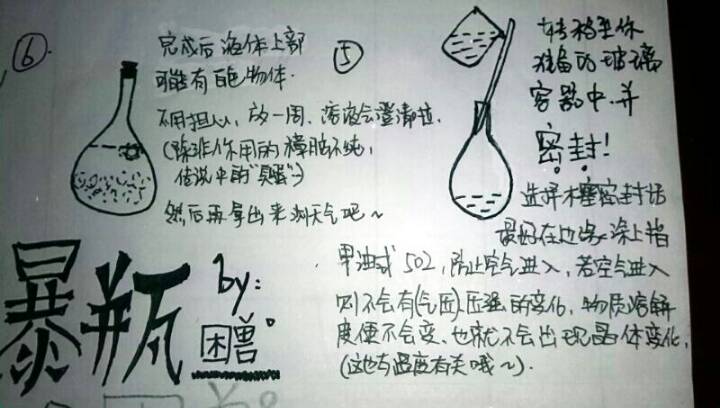 ⑥
完成后液体上部
可能有白色物体.
不用担心，放一周，溶液会澄清哒.
(除非你用的樟脑不纯，
传说中的"臭蛋")
然后再拿出来测天气吧~
⑤
转移至你
准备的玻璃
容器中.并
密封!
选择木塞密封的话
最好在边缘涂上指
甲油或502，防止空气进入，若空气进入
则不会有(气压)压强的变化，物质溶解
度便不会变、也就不会出现晶体变化，
(这也与温度有关哦~).
暴瓶
by:
困兽。